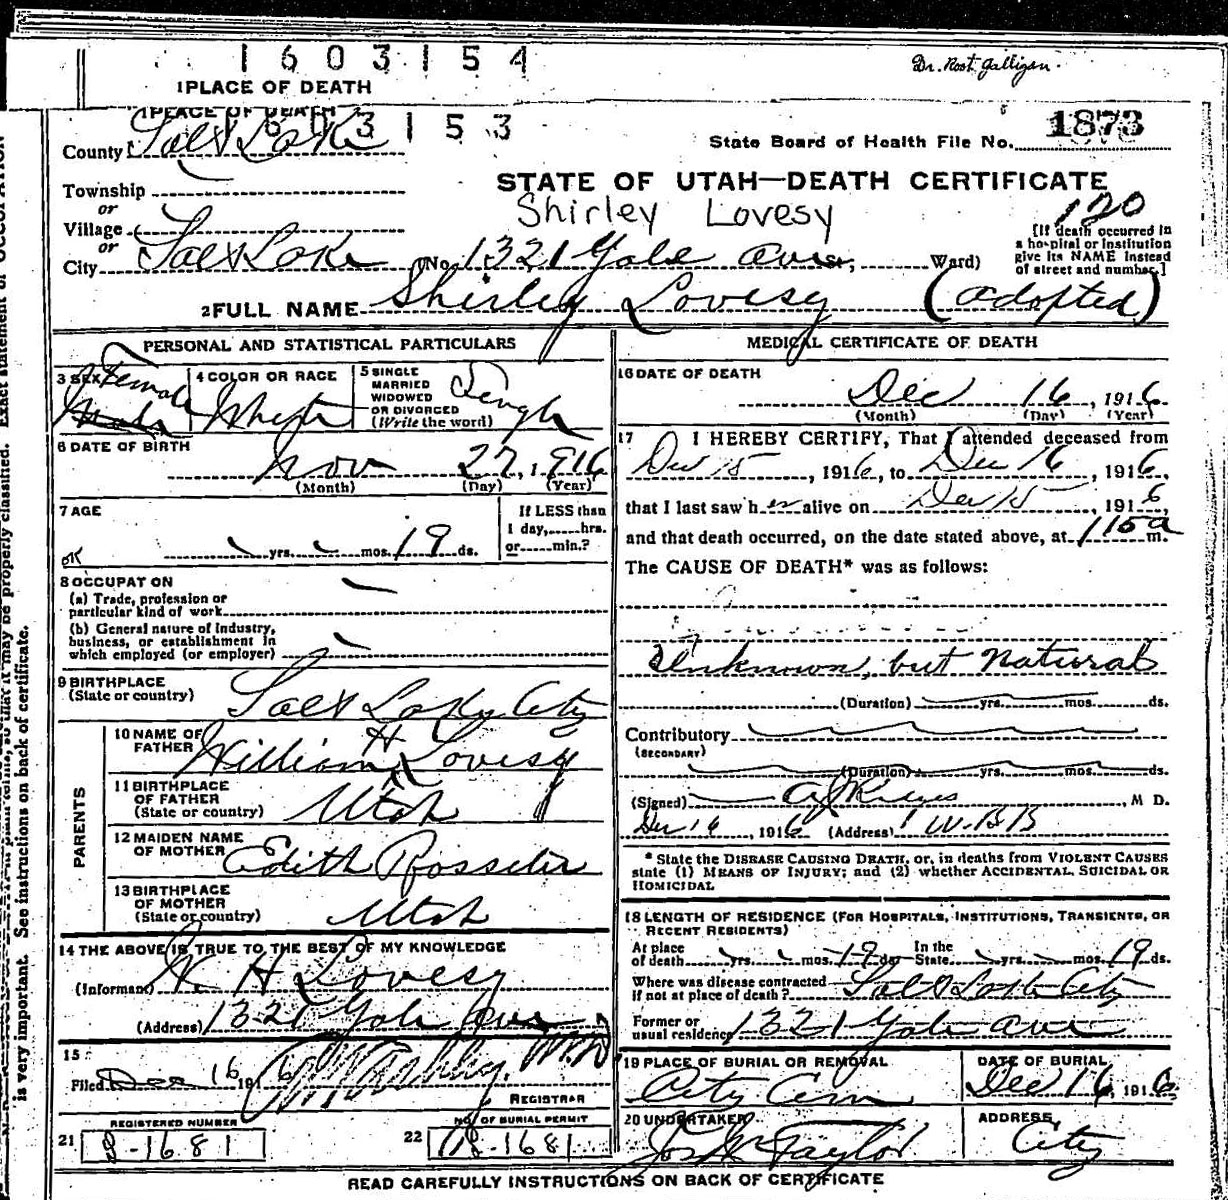 1603154
Dr. Root. Galligan.
1 PLACE OF DEATH
1 PLACE OF DEATH
1603153
County Salt Lake
State Board of Health File No. 1873
Township
STATE OF UTAH—DEATH CERTIFICATE
or
Shirley Lovesy
120
Village
or
City Salt Lake (No. 1321 Yale Ave St., Ward)
[If death occurred in
a hospital or institution
give its NAME instead
of street and number.]
2 FULL NAME Shirley Lovesy (adopted)
PERSONAL AND STATISTICAL PARTICULARS
3 SEX Female Male
4 COLOR OR RACE White
5 SINGLE
MARRIED
WIDOWED
OR DIVORCED
(Write the word) Single
6 DATE OF BIRTH
Nov 27, 1916
(Month) (Day) (Year)
7 AGE
OK yrs. mos. 19 ds.
If LESS than
1 day, hrs.
or min.?
8 OCCUPATION
(a) Trade, profession or
particular kind of work
(b) General nature of industry,
business, or establishment in
which employed (or employer)
9 BIRTHPLACE
(State or country) Salt Lake City
PARENTS
10 NAME OF
FATHER William H Lovesy
11 BIRTHPLACE
OF FATHER
(State or country) Utah
12 MAIDEN NAME
OF MOTHER Edith Rossiter
13 BIRTHPLACE
OF MOTHER
(State or country) Utah
14 THE ABOVE IS TRUE TO THE BEST OF MY KNOWLEDGE
(Informant) W. H Lovesy
(Address) 1321 Yale Ave
15
Filed Dec 16 1916
REGISTRAR
REGISTERED NUMBER
21 D-1681
NO. OF BURIAL PERMIT
22 D-1681
MEDICAL CERTIFICATE OF DEATH
16 DATE OF DEATH
Dec 16, 1916
(Month) (Day) (Year)
17 I HEREBY CERTIFY, That I attended deceased from
Dec 15, 1916, to Dec 16, 1916,
that I last saw her alive on Dec 15, 1916,
and that death occurred, on the date stated above, at 1 15 a m.
The CAUSE OF DEATH* was as follows:
Unknown, but Natural
(Duration) yrs. mos. ds.
Contributory
(SECONDARY)
(Duration) yrs. mos. ds.
(Signed) M D.
Dec 16, 1916 (Address) W.B.B
* State the DISEASE CAUSING DEATH, or, in deaths from VIOLENT CAUSES
state (1) MEANS OF INJURY; and (2) whether ACCIDENTAL, SUICIDAL OR
HOMICIDAL
18 LENGTH OF RESIDENCE (FOR HOSPITALS, INSTITUTIONS, TRANSIENTS, OR
RECENT RESIDENTS)
At place
of death yrs. mos. 19 ds. In the
State yrs. mos. 19 ds.
Where was disease contracted
if not at place of death? Salt Lake City
Former or
usual residence 1321 Yale Ave
19 PLACE OF BURIAL OR REMOVAL
City Cem
DATE OF BURIAL
Dec 16, 1916
20 UNDERTAKER
Jos Wm Taylor
ADDRESS
City
READ CAREFULLY INSTRUCTIONS ON BACK OF CERTIFICATE
Exact statement of OCCUPATION
so that it may be properly classified.
is very important. See instructions on back of certificate.